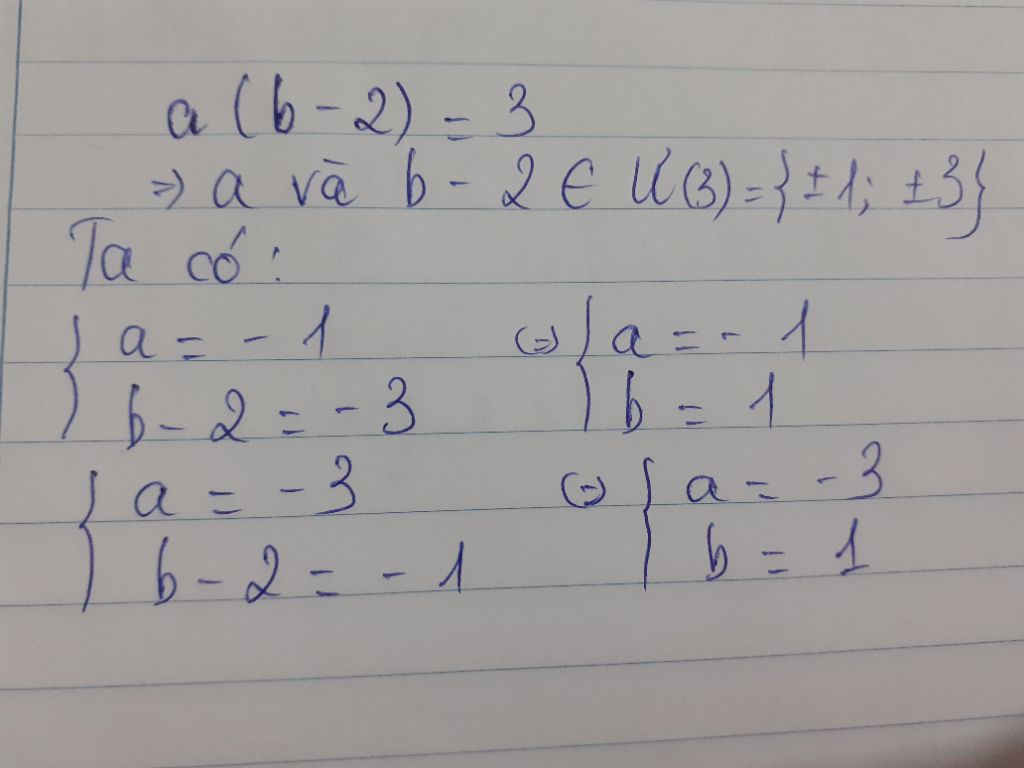 a (b - 2) = 3
=> a và b - 2 ∈ Ư(3) = {±1; ±3}
Ta có:
{ a = - 1 <=> { a = - 1
b - 2 = - 3 b = 1
{ a = - 3 <=> { a = - 3
b - 2 = - 1 b = 1